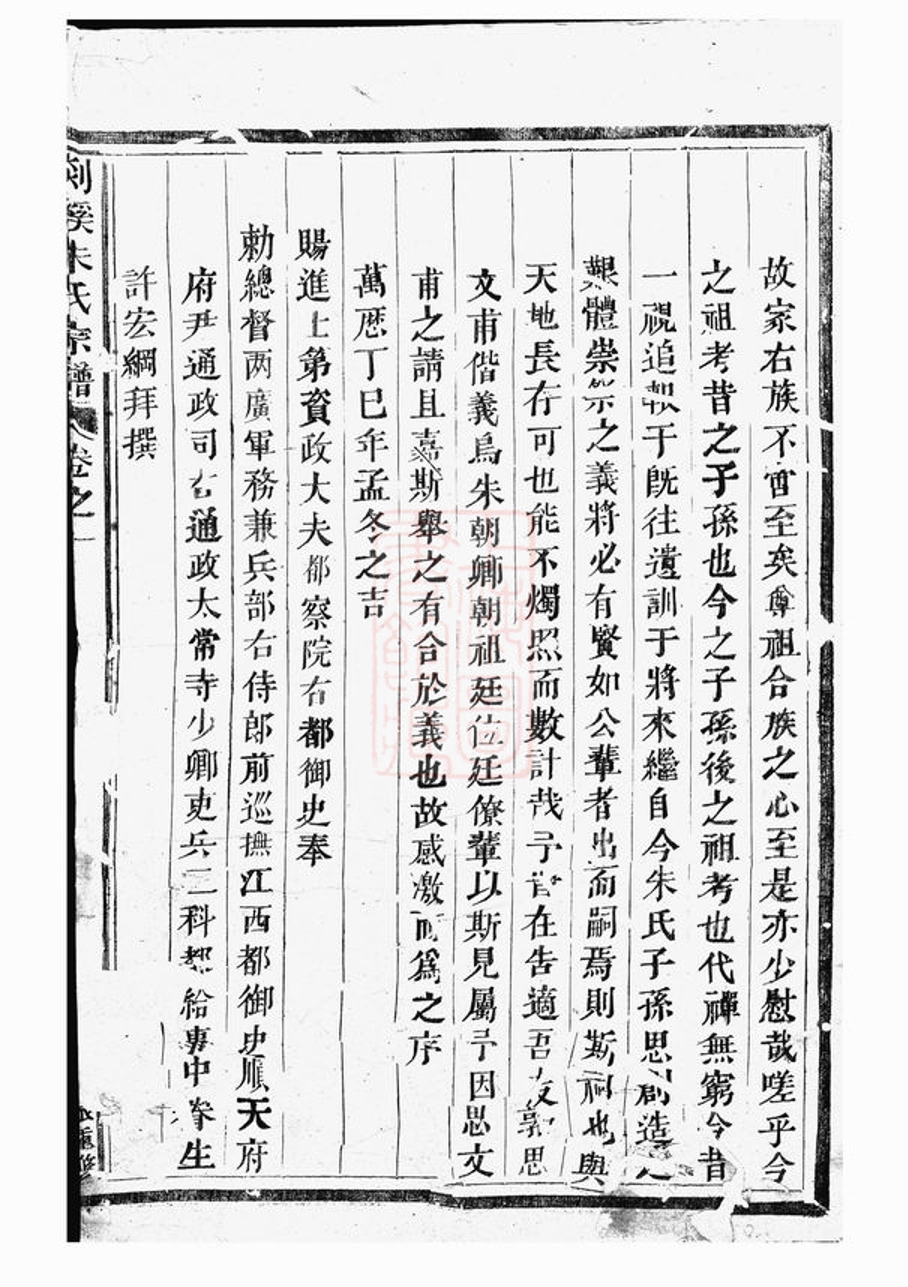 故家右族不啻至矣尊祖合族之心至是亦少慰哉嗟乎今
之祖考昔之子孫也今之子孫後之祖考也代禪無窮今昔
一視追報于既往遺訓于將來繼自今朱氏子孫思創造之
艱體崇宗之義將必有賢如公輩者出而嗣焉則斯祠也與
天地長存可也能不燭照而數計哉予昔在告適吾友郭思
文甫偕義烏朱朝卿朝祖廷位廷僚輩以斯見屬予因思文
甫之請且嘉斯舉之有合於義也故感激而為之序
萬歷丁巳年孟冬之吉
賜進士第資政大夫都察院右都御史奉
勅總督两廣軍務兼兵部右侍郎前巡撫江西都御史順天府
府尹通政司右通政太常寺少卿吏兵二科都給事中眷生
許宏綱拜撰
剡溪朱氏宗譜 卷之一
重修